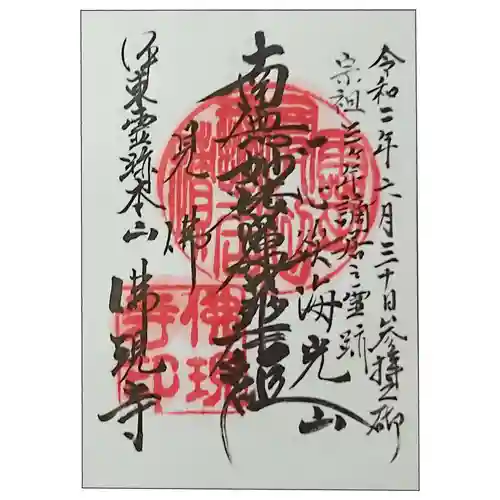 令和二年六月三十日参拝之砌
宗祖三ヶ年謫居之霊跡
海光山
一心欲
南無妙法蓮華経
見佛
伊東霊跡本山
佛現寺
佛現寺印